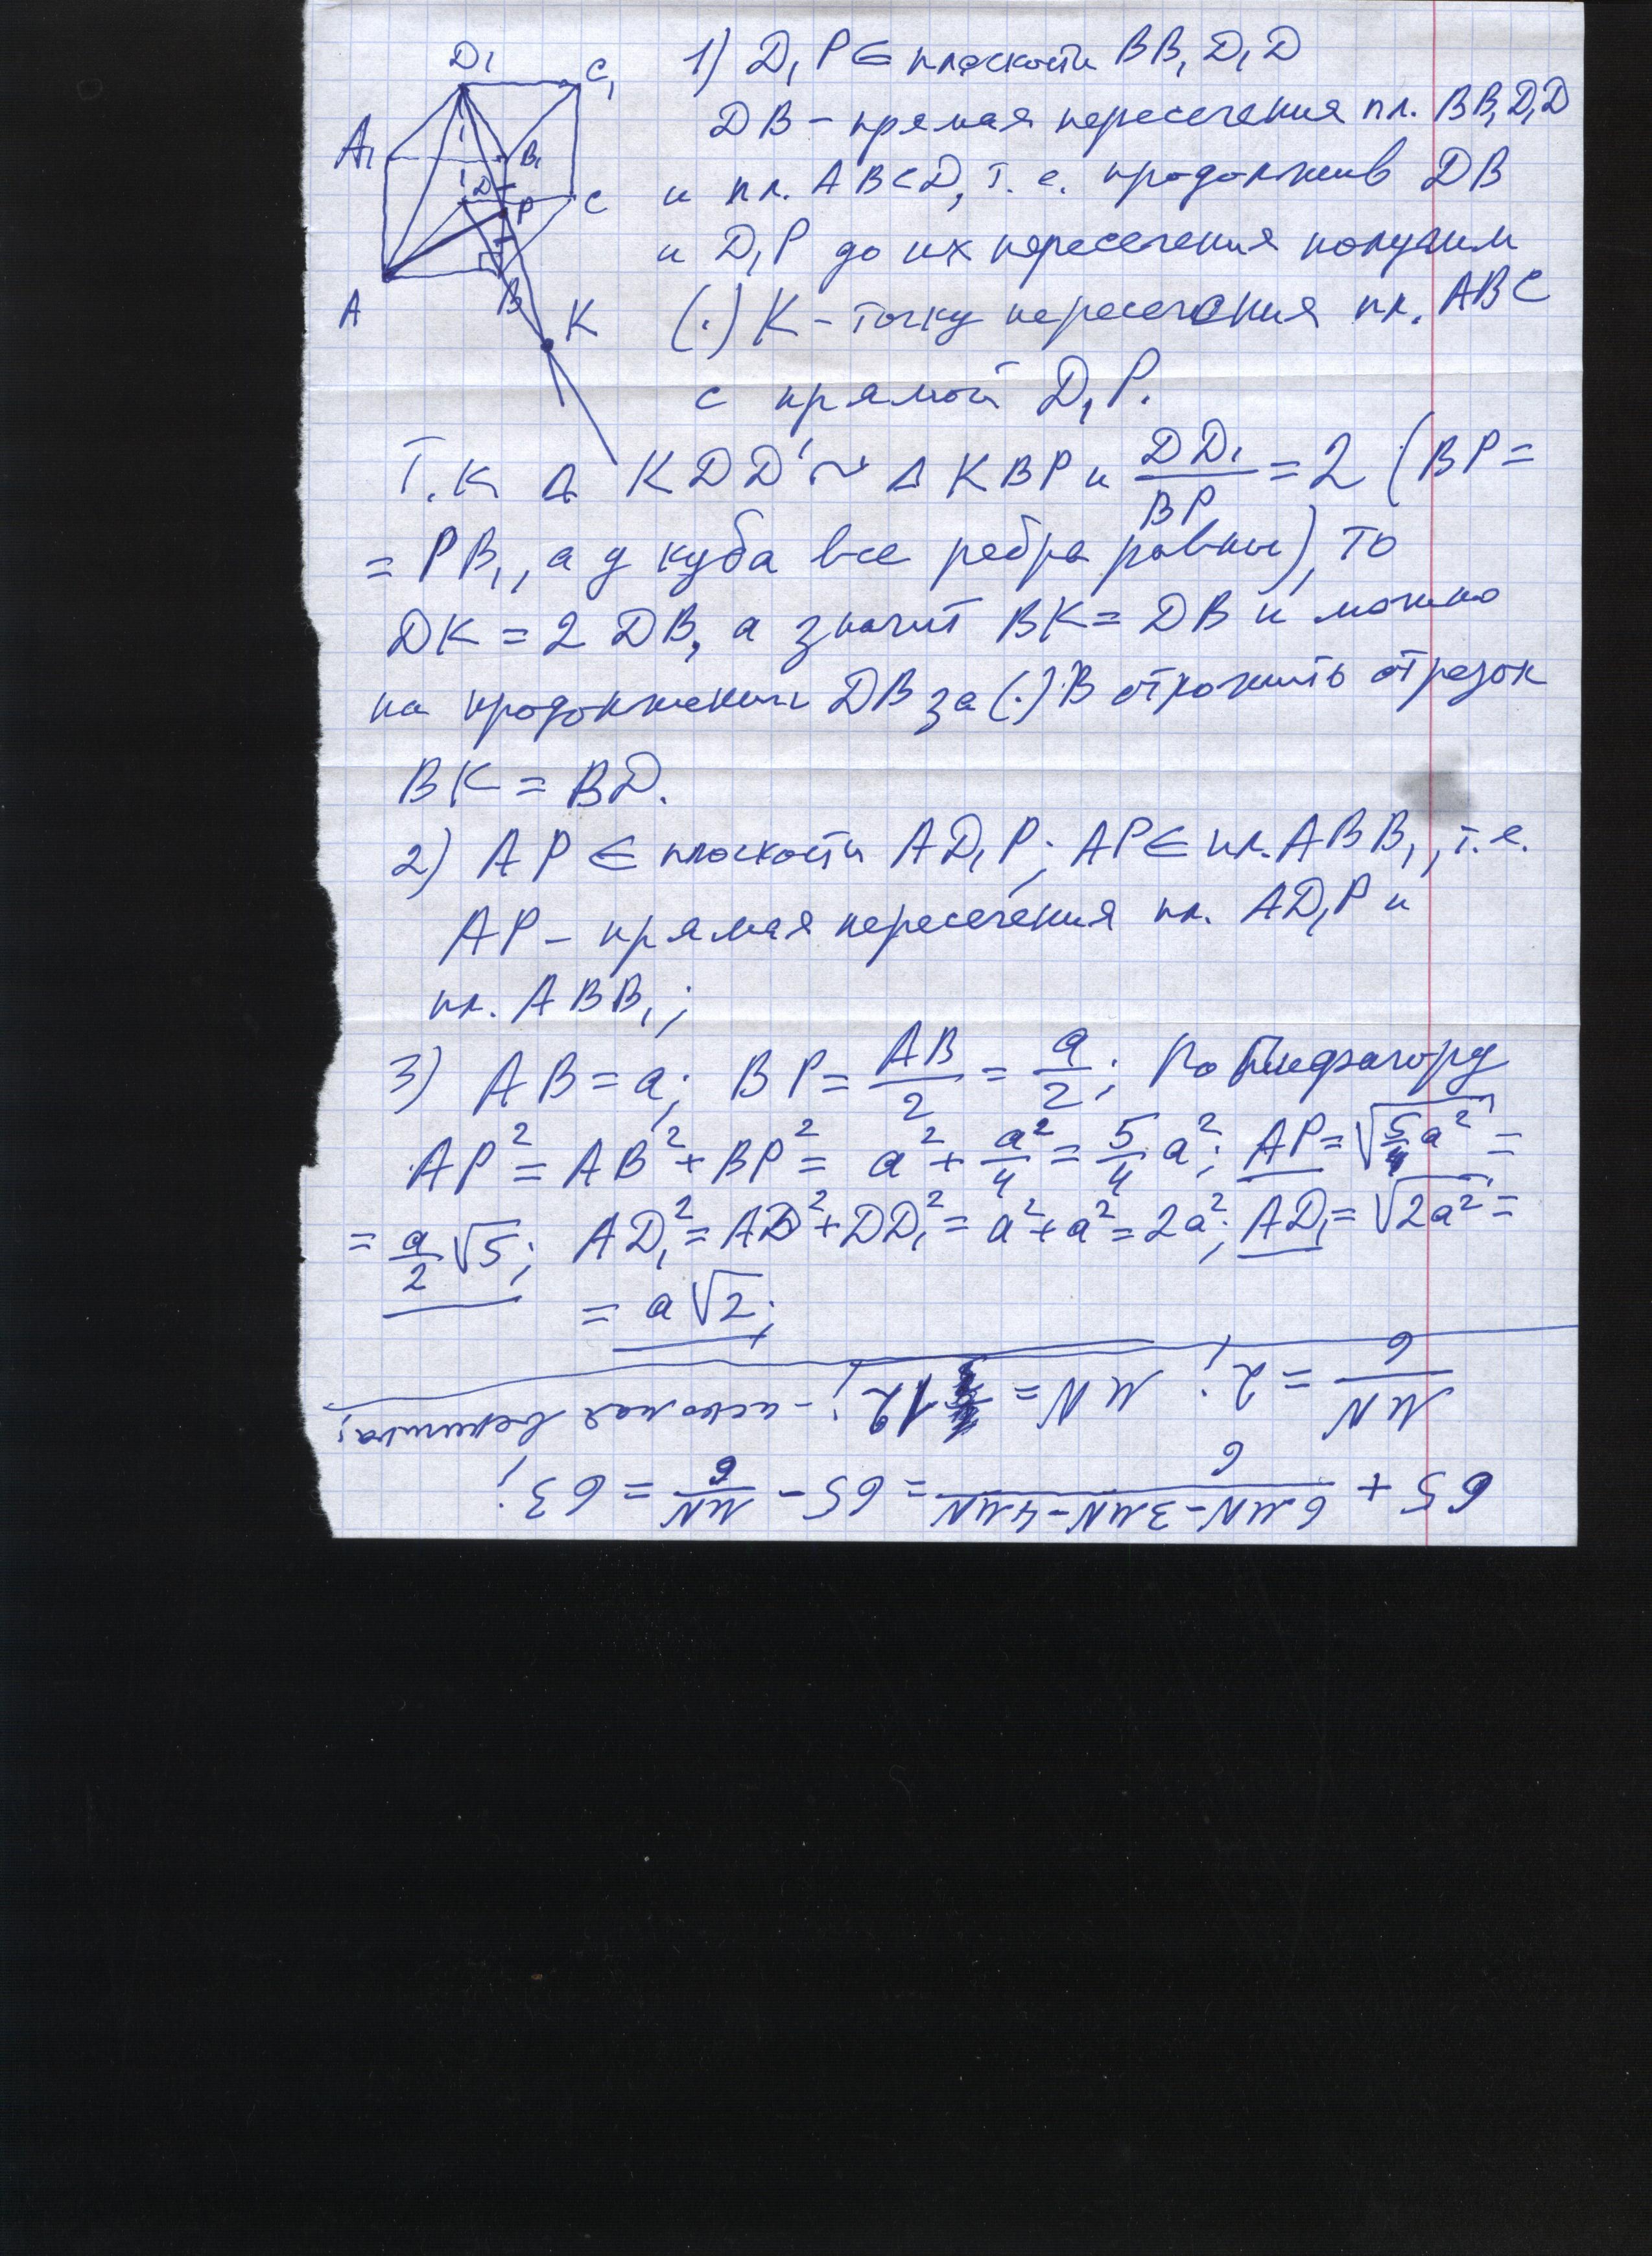 D₁
C₁
A₁
B₁
D
P
C
A
B
K
1) D₁P ∈ плоскости BB₁D₁D
DB – прямая пересечения пл. BB₁D₁D
и пл. ABCD, т. е. продолжив DB
и D₁P до их пересечения получим
(·) K – точку пересечения пл. ABC
с прямой D₁P.
Т.к. Δ KDD' ~ Δ KBP и DD₁/BP = 2 (BP =
= PB₁, а у куба все ребра равны), то
DK = 2 DB, а значит BK = DB и можно
на продолжении DB за (·) B отложить отрезок
BK = BD.
2) AP ∈ плоскости AD₁P; AP ∈ пл. ABB₁, т.е.
AP – прямая пересечения пл. AD₁P и
пл. ABB₁;
3) AB = a; BP = AB/2 = a/2; По Пифагору
AP² = AB² + BP² = a² + a²/4 = 5/4 a²; AP = √(5/4 a²) =
= a/2 √5; AD₁² = AD² + DD₁² = a² + a² = 2a²; AD₁ = √(2a²) =
= a√2;
65 + (6MN – 3MN – 4MN)/6 = 65 – MN/6 = 63;
MN/6 = 2; MN = 12; – искомая величина;